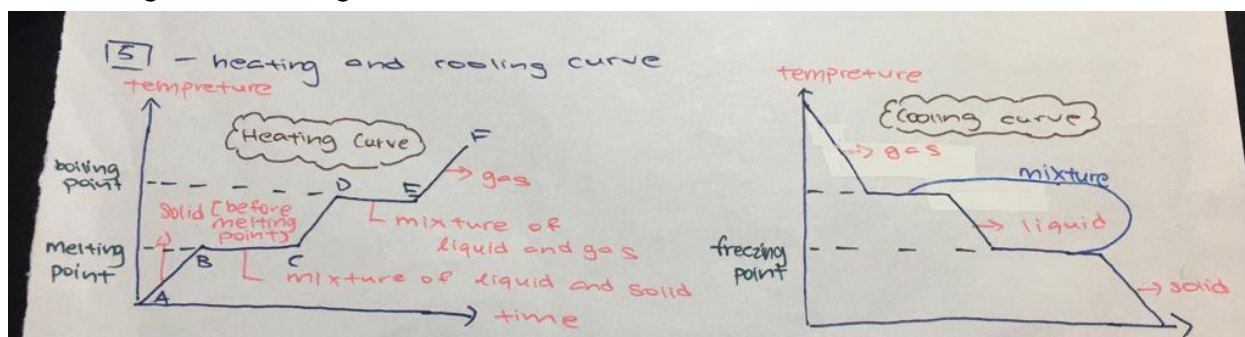 5 - heating and cooling curve
tempreture
Heating Curve
F
boiling
point
D
E
gas
solid [before
melting
points]
mixture of
liquid and gas
melting
point
B
C
mixture of liquid and solid
A
time
tempreture
Cooling curve
gas
mixture
liquid
freezing
point
solid